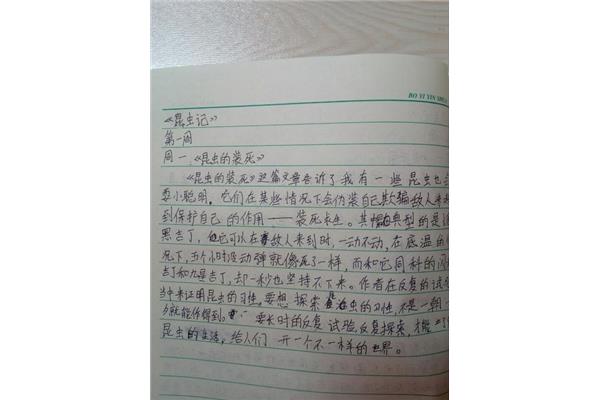 BO YI YIN SHU
《昆虫记》
第一周
周一《昆虫的装死》
《昆虫的装死》这篇文章告诉了我有一些昆虫也会
耍小聪明。它们在某些情况下会伪装自己欺骗敌人来
到保护自己的作用——装死求生。其中典型的是
黑吉丁,它可以在敌人来到时,一动不动,在底温的
况下,五个小时没动弹就像死了一样,而和它同科的
吉丁和九星吉丁,却一秒也坚持不下来。作者在反复的试
当中来证明昆虫的习性,要想探索昆虫的习性,不是一朝一
夕就能你得到。要长时的反复试验,反复探索,才能
昆虫的生活,给人们开一个不一样的世界。